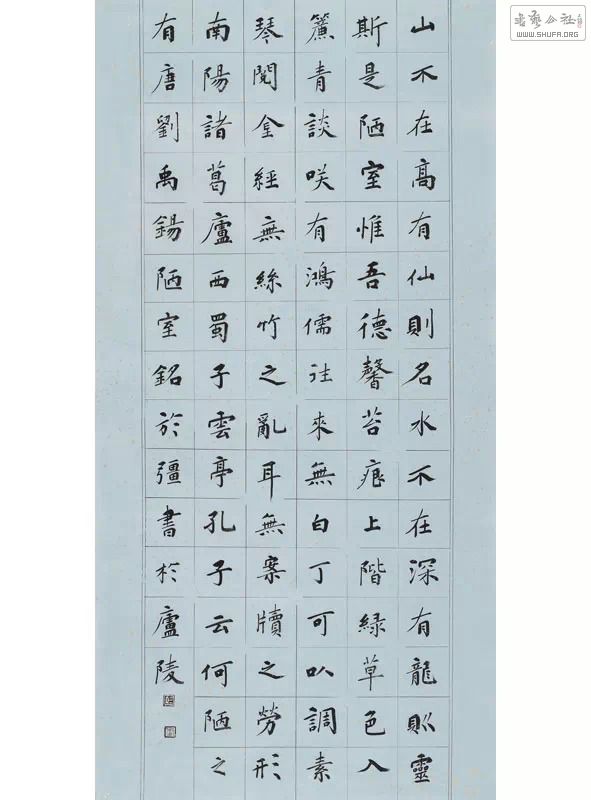 山不在高有仙則名水不在深有龍則靈
斯是陋室惟吾德馨苔痕上階緑草色入
簾青談咲有鴻儒往來無白丁可以調素
琴閱金經無絲竹之亂耳無案牘之勞形
南陽諸葛廬西蜀子雲亭孔子云何陋之
有唐劉禹錫陋室銘於彊書於廬陵
書藝公社
WWW.SHUFA.ORG